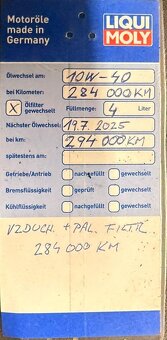 Motoröle
made in
Germany
LIQUI
MOLY
Ölwechsel am: 10W-40
bei Kilometer: 284 000KM
X Ölfilter gewechselt Füllmenge: 4 Liter
Nächster Ölwechsel: 19.7.2025
bei km: 294 000KM
spätestens am:
Getriebe/Antrieb nachgefüllt gewechselt
Bremsflüssigkeit geprüft gewechselt
Kühlflüssigkeit nachgefüllt gewechselt
VZDUCH. + PAL. FILTR
284 000 KM